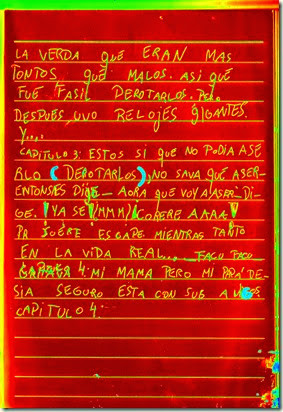 LA VERDA QUE ERAN MAS
TONTOS QUE MALOS. ASI QUE
FUE FASIL DEROTARLOS. PERO
DESPUES UVO RELOJES GIGANTES.
Y....
CAPITULO 3: ESTOS SI QUE NO PODIA ASE
RLO (DEROTARLOS) NO SAVA QUE ASER
ENTONSES DIJE - AORA QUE VOY A ASER_DI
GE. ¡YA SE! (MMM) ¡CORERE AAAA!
ESCAPE. MIENTRAS TANTO
EN LA VIDA REAL....
MI MAMA PERO MI PAPA DE-
SIA SEGURO ESTA CON SUB
CAPITULO 4: